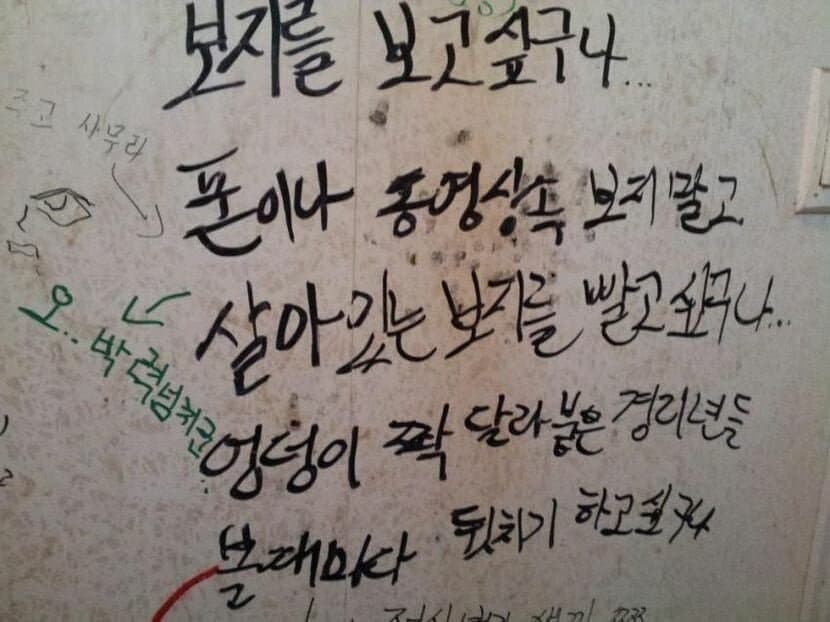 보지를 보고 싶구나...
폰이나 동영상속 보지 말고
살아 있는 보지를 빨고 싶구나...
엉덩이 짝 달라 붙은 경리년들
볼 때마다 뒷치기 하고 싶구나
오.. 박력넘치군..